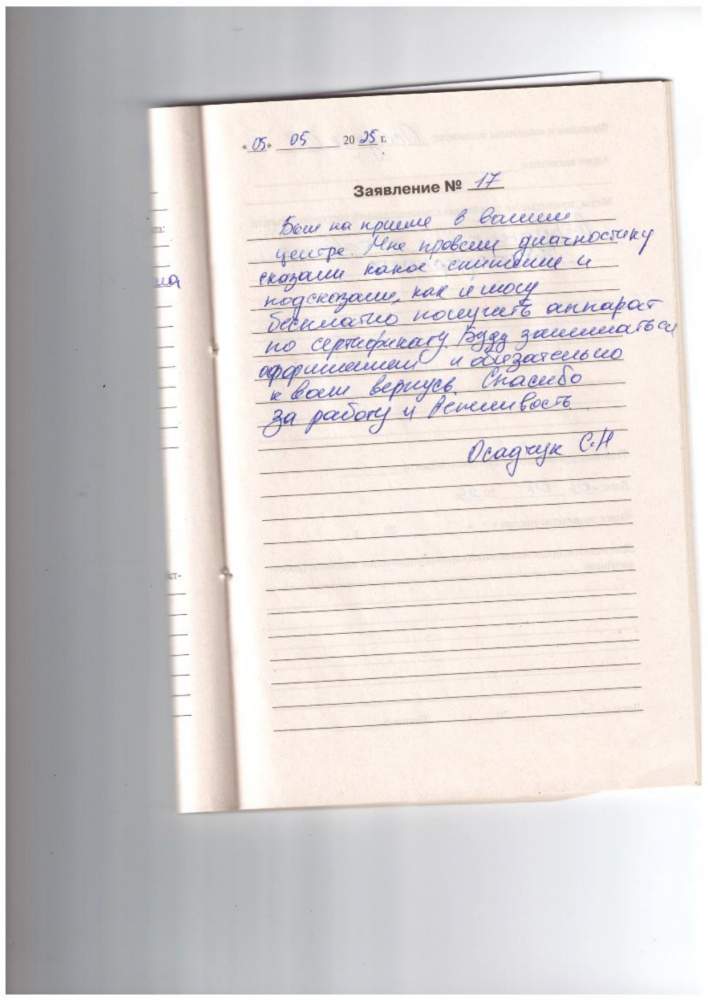 «05» 05 2025 г.
Заявление № 17
Был на приеме в вашем
центре. Мне провели диагностику
сказали какое снижение и
подсказали, как я могу
бесплатно получить аппарат
по сертификату. Буду заниматься
оформлением и обязательно
к вам вернусь. Спасибо
за работу и
Осадчук С.Н